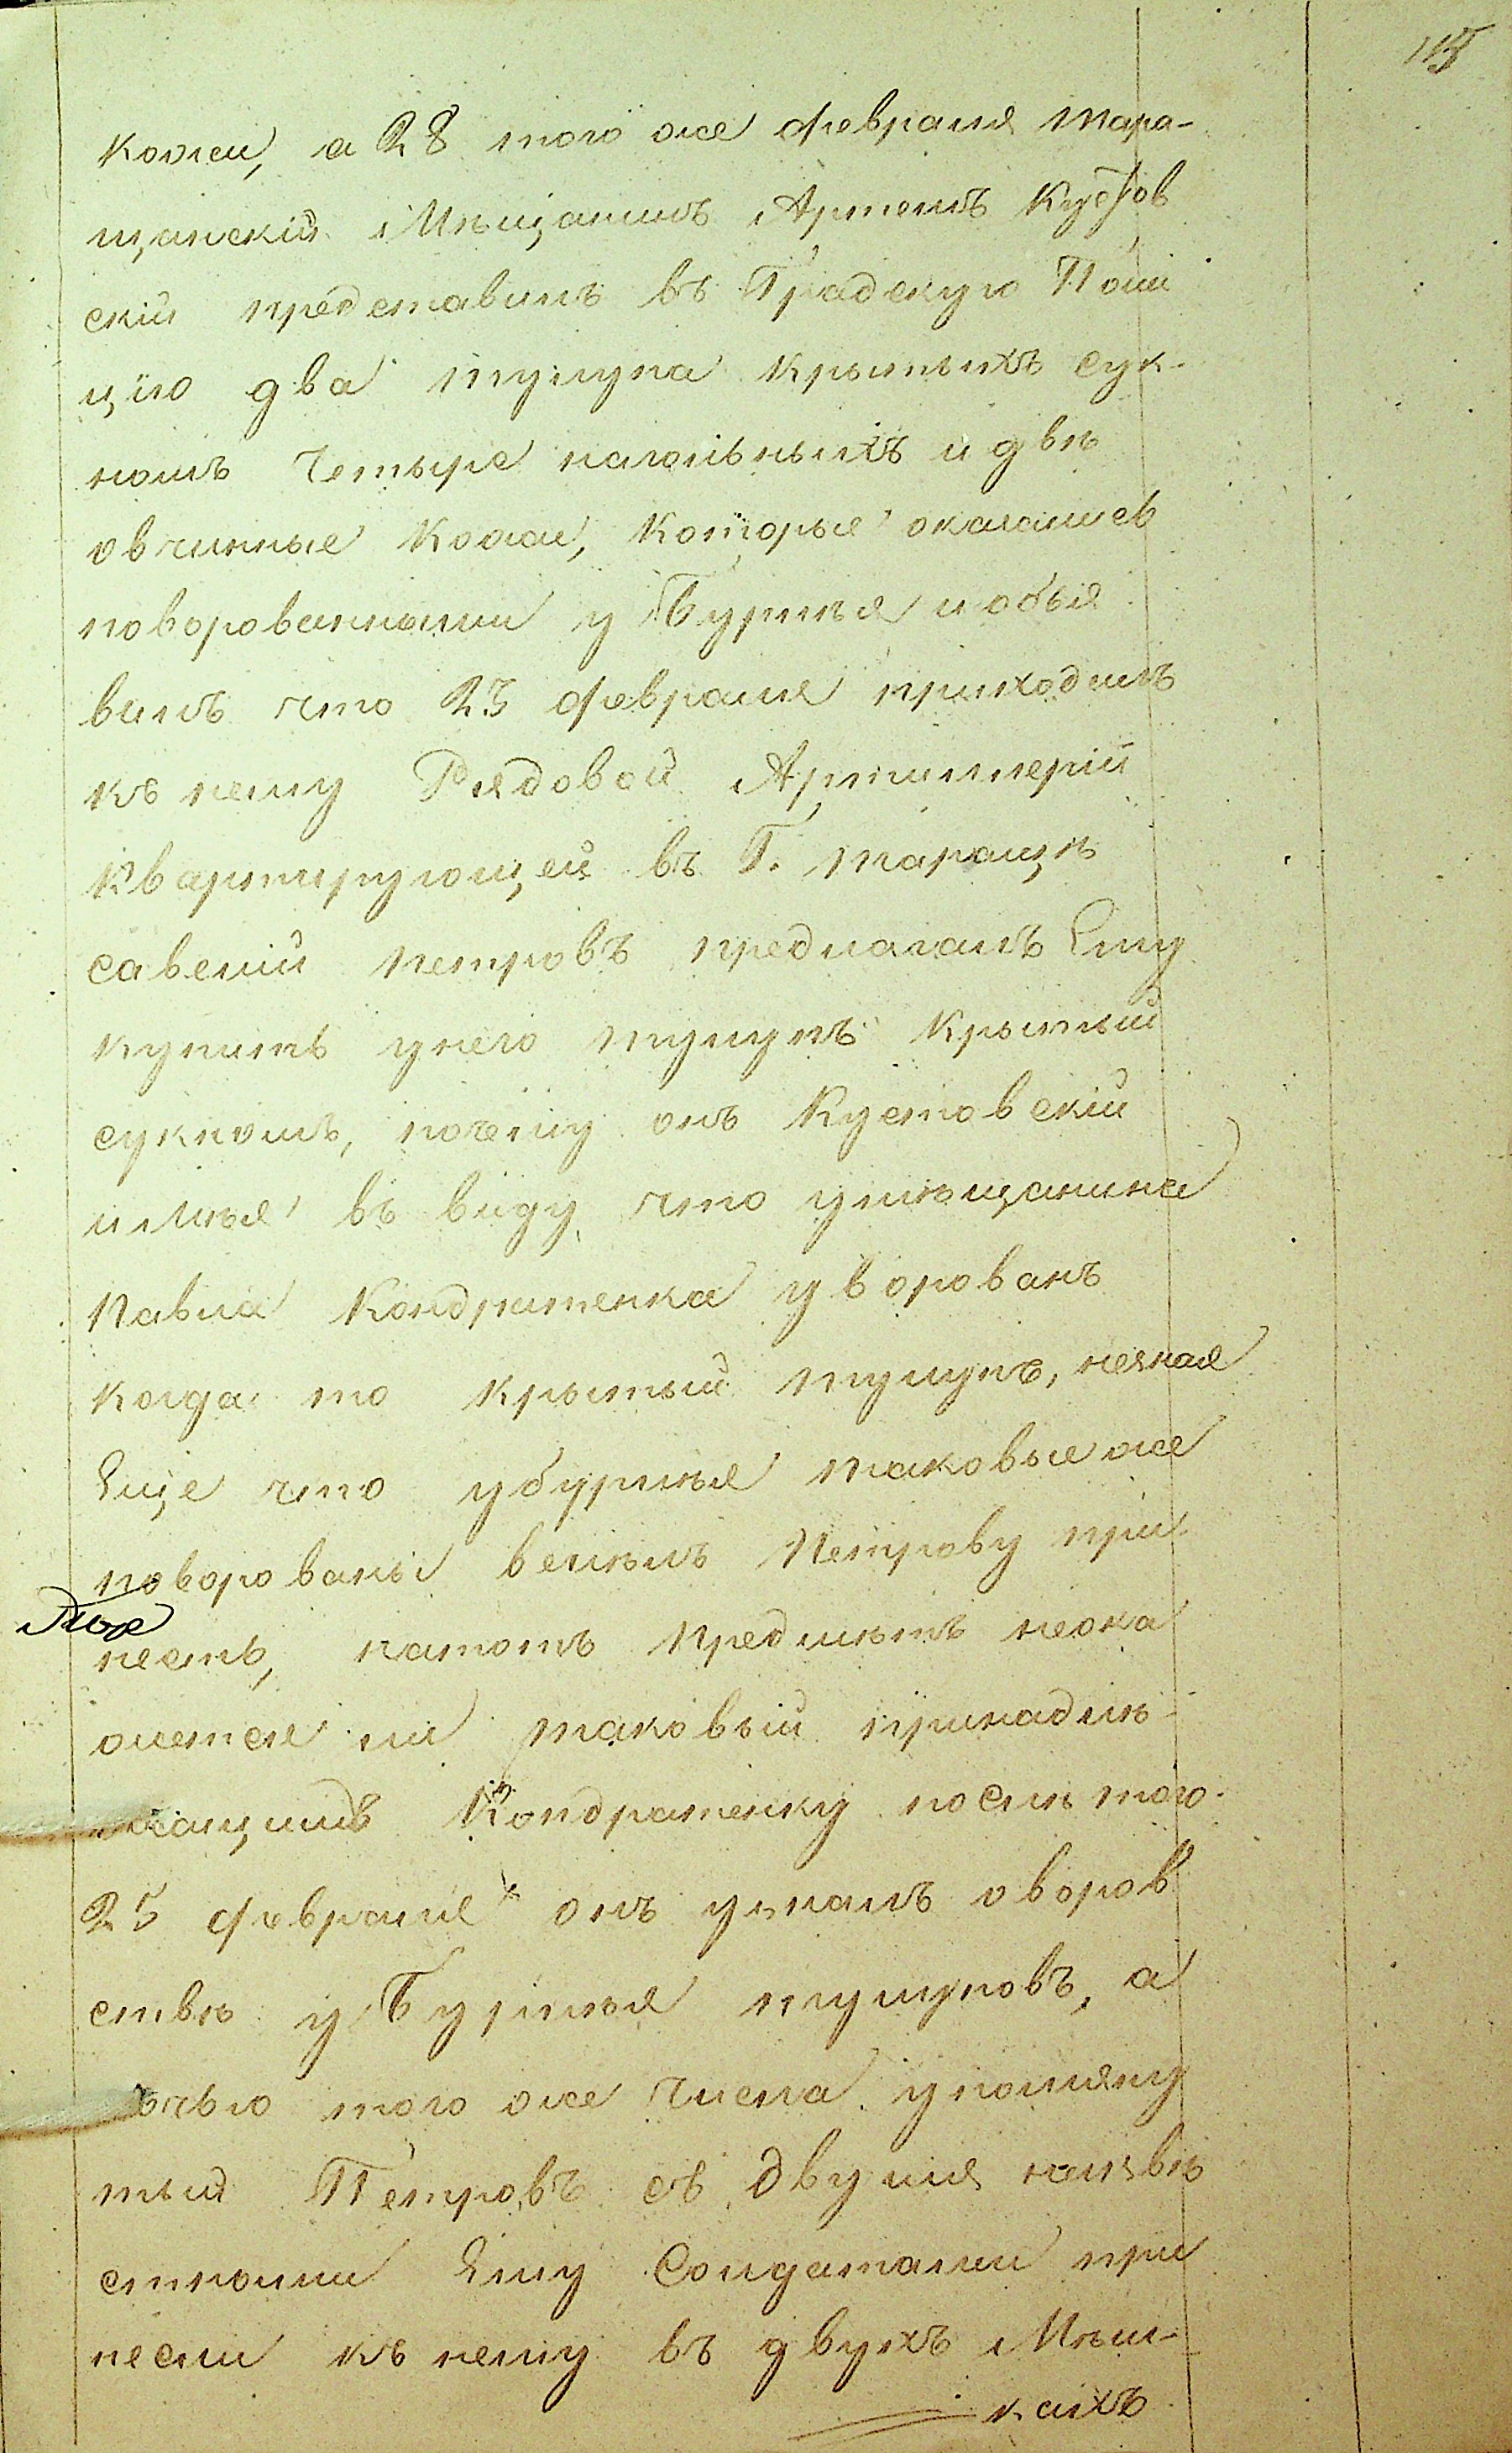 115
кожи, а 28 того же февраля Тара-
щанскій Мѣщанинъ Артемъ Кустов
скій представилъ въ Градскую Поли
цію два тулупа крытыхъ сук-
номъ Четыре нагольныхъ и двѣ
овчинные Кожи, Которые оказались
поворованными у Бурмея и объя
вилъ что 23 февраля приходилъ
къ нему Рядовой Артиллеріи
Квартирующей въ Г. Таращѣ
савелій петровъ предлагалъ Ему
купить унего тулупъ Крытый
сукномъ, почему онъ Кустовскій
имѣя въ виду что умѣщанина
Павла Кондратенка уворованъ
когда то крытый тулупъ, незная
Еще что у бурмея таковые же
поворованы велѣлъ Петрову при
несть, натотъ предмѣтъ неока
жется ли таковый принадлѣ-
жащимъ Кондратенку послѣ того
25 февраля х онъ узналъ оворов
ствѣ у Бурмея тулуповъ, а
ночью того же числа упомяну
тый Петровъ съ двумя неизвѣ
стными Ему Солдатами при
несли къ нему въ двухъ Мѣш-
кахъ